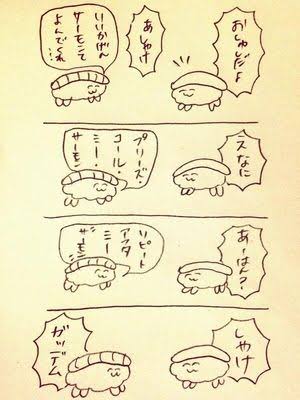 おしゅしだよ
あしゃけ
いいかげん
サーモンて
よんでくれ…
えなに
プリーズ・
コール・
ミー・
サーモン
あーはん?
リピート
アフタ
ミー
サーモン
しゃけ
ガッデム